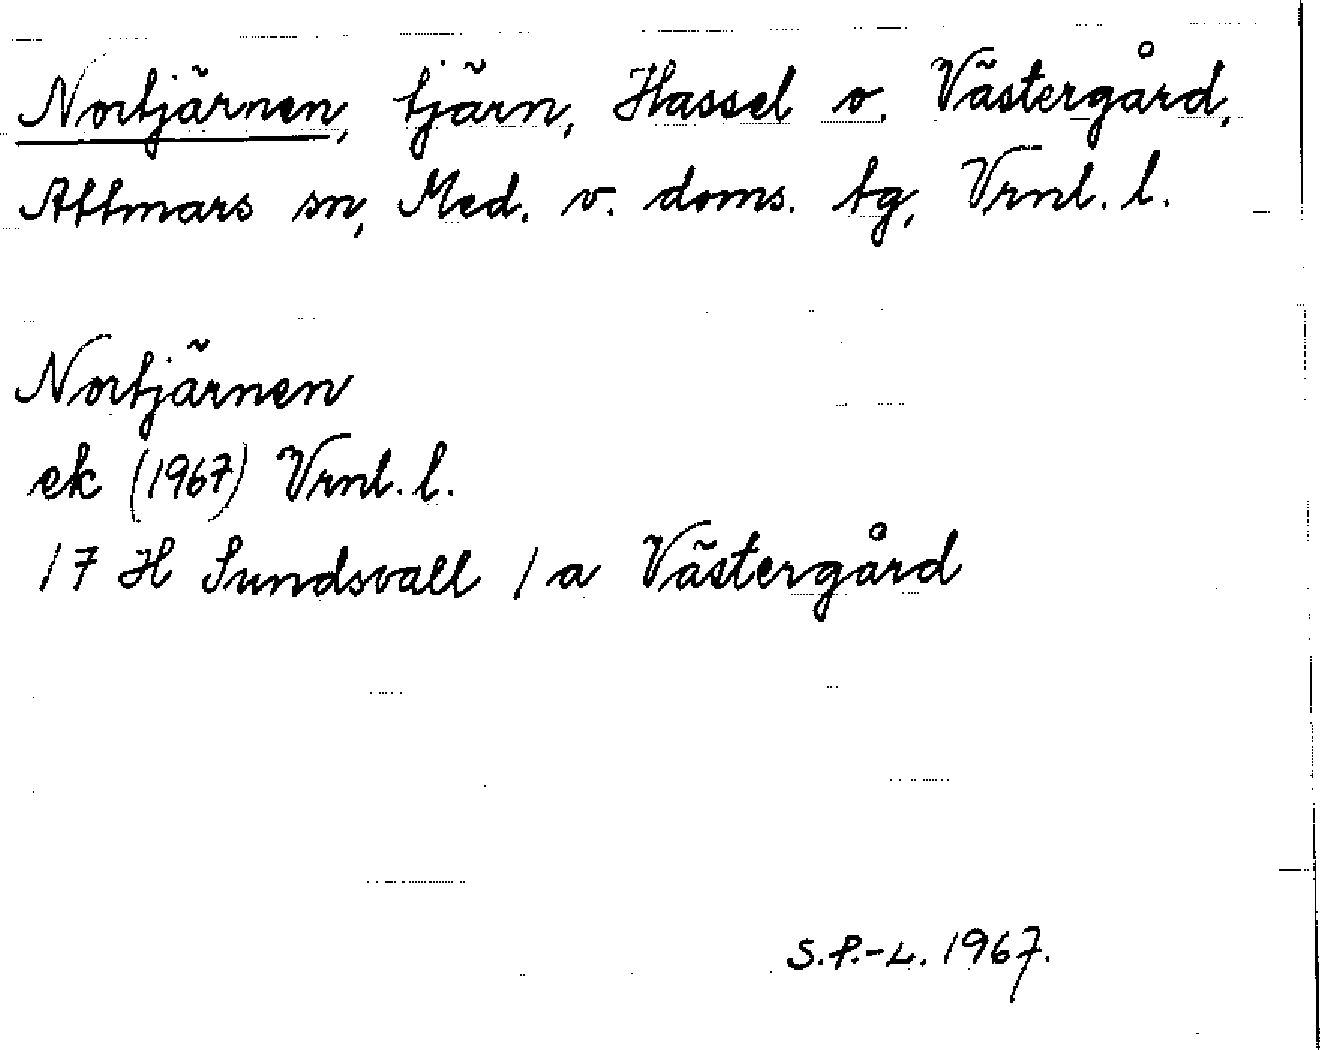 Nortjärnen, tjärn, Hassel o. Västergård,
Attmars sn, Med. v. doms. tg, Vrnl. l.
Nortjärnen
ek (1967) Vrnl. l.
17 H Sundsvall 1 a Västergård
S.P.-L. 1967.